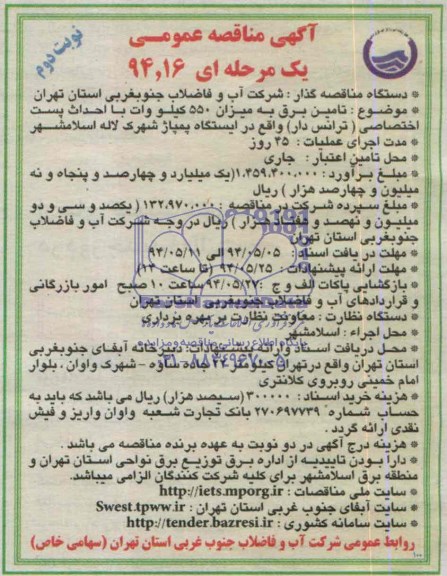 آگهی مناقصه عمومی
یک مرحله ای ۹۴,۱۶
نوبت دوم
* دستگاه مناقصه گذار : شرکت آب و فاضلاب جنوبغربی استان تهران
* موضوع : تامین برق به میزان ۵۵۰ کیلو وات با احداث پست
اختصاصی ( ترانس دار) واقع در ایستگاه پمپاژ شهرک لاله اسلامشهر
* مدت اجرای عملیات : ۴۵ روز
* محل تامین اعتبار : جاری
* مبلغ برآورد : ۱,۴۵۹,۴۰۰,۰۰۰(یک میلیارد و چهارصد و پنجاه و نه
میلیون و چهارصد هزار ) ریال
* مبلغ سپرده شرکت در مناقصه : ۱۳۲,۹۷۰,۰۰۰ ( یکصد و سی و دو
میلیون و نهصد و هفتاد هزار ) ریال در وجه شرکت آب و فاضلاب
جنوبغربی استان تهران
* مهلت دریافت اسناد : ۹۴/۰۵/۰۵ الی ۹۴/۰۵/۱۱
* مهلت ارائه پیشنهادات : ۹۴/۰۵/۲۵ (تا ساعت ۱۴)
* بازگشایی پاکات الف و ج : ۹۴/۰۵/۲۷ ساعت ۱۰ صبح امور بازرگانی
و قراردادهای آب و فاضلاب جنوبغربی استان تهران
* دستگاه نظارت : معاونت نظارت بر بهره برداری
* محل اجراء : اسلامشهر
* محل دریافت اسناد وارائه پیشنهادات: دبیرخانه آبفای جنوبغربی
استان تهران واقع درتهران کیلومتر ۲۴ جاده ساوه – شهرک واوان . بلوار
امام خمینی روبروی کلانتری
* هزینه خرید اسناد : ۳۰۰۰۰۰ (سیصد هزار) ریال می باشد که باید به
حساب شماره ۲۷۰۶۹۷۷۳۹ بانک تجارت شعبه واوان واریز و فیش
نقدی ارائه گردد .
* هزینه درج آگهی در دو نوبت به عهده برنده مناقصه می باشد .
* دارا بودن تاییدیه از اداره برق توزیع برق نواحی استان تهران و
منطقه برق اسلامشهر برای کلیه شرکت کنندگان الزامی میباشد.
* سایت ملی مناقصات : http://iets.mporg.ir
* سایت آبفای جنوب غربی استان تهران : Swest.tpww.ir
* سایت سامانه کشوری : http://tender.bazresi.ir
روابط عمومی شرکت آب و فاضلاب جنوب غربی استان تهران (سهامی خاص)